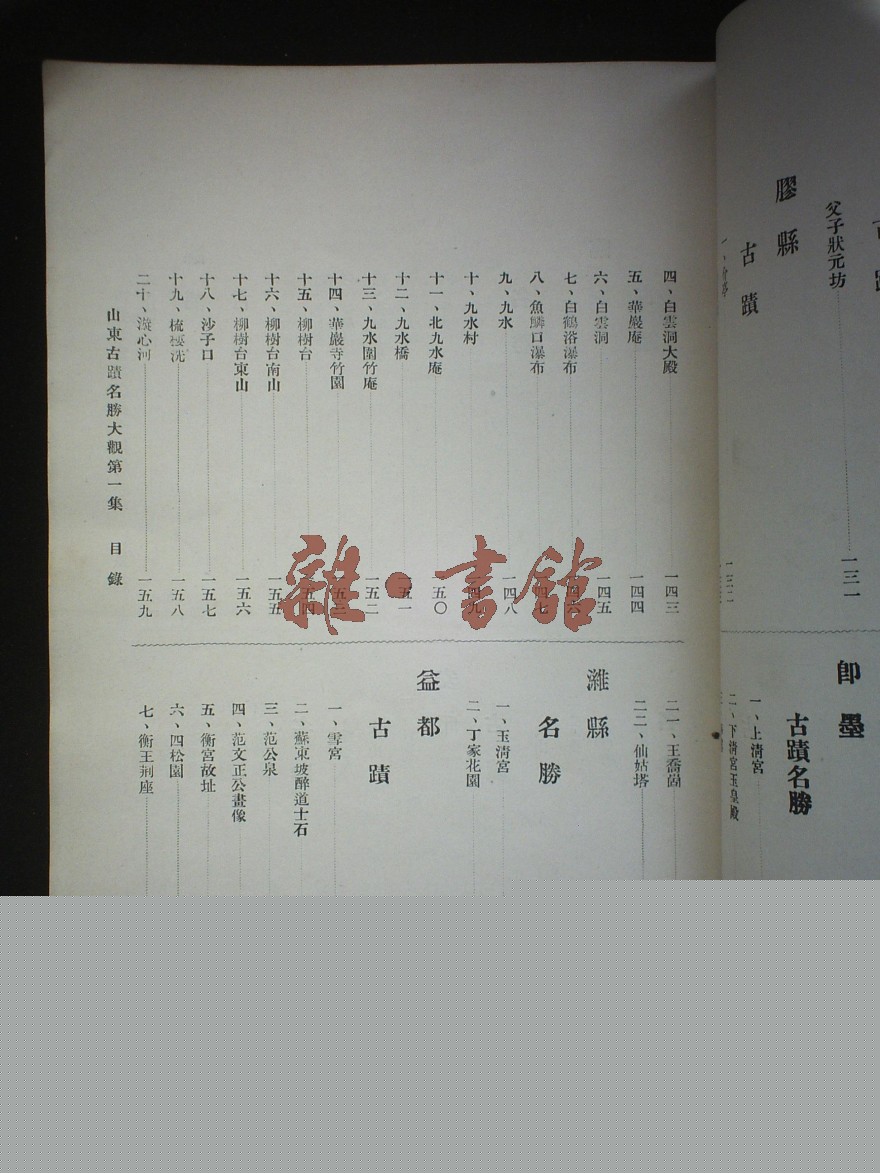 膠縣
古蹟
父子狀元坊
一三一
即墨
古蹟名勝
一、上清宮
二、下清宮玉皇殿
四、白雲洞大殿 一四三
五、華嚴庵 一四四
六、白雲洞 一四五
七、白鶴浴瀑布
八、魚鱗口瀑布
九、九水 一四八
十、九水村
十一、北九水庵 一五〇
十二、九水橋 一五一
十三、九水圍竹庵 一五二
十四、華嚴寺竹園 一五三
十五、柳樹台 一五四
十六、柳樹台南山 一五五
十七、柳樹台東山 一五六
十八、沙子口 一五七
十九、梳 洗 一五八
二十、漩心河 一五九
二一、王喬崮
二二、仙姑塔
濰縣
名勝
一、玉清宮
二、丁家花園
益都
古蹟
一、雪宮
二、蘇東坡醉道士石
三、范公泉
四、范文正公畫像
五、衡宮故址
六、四松園
七、衡王荊座
山東古蹟名勝大觀第一集 目錄
雜·書館